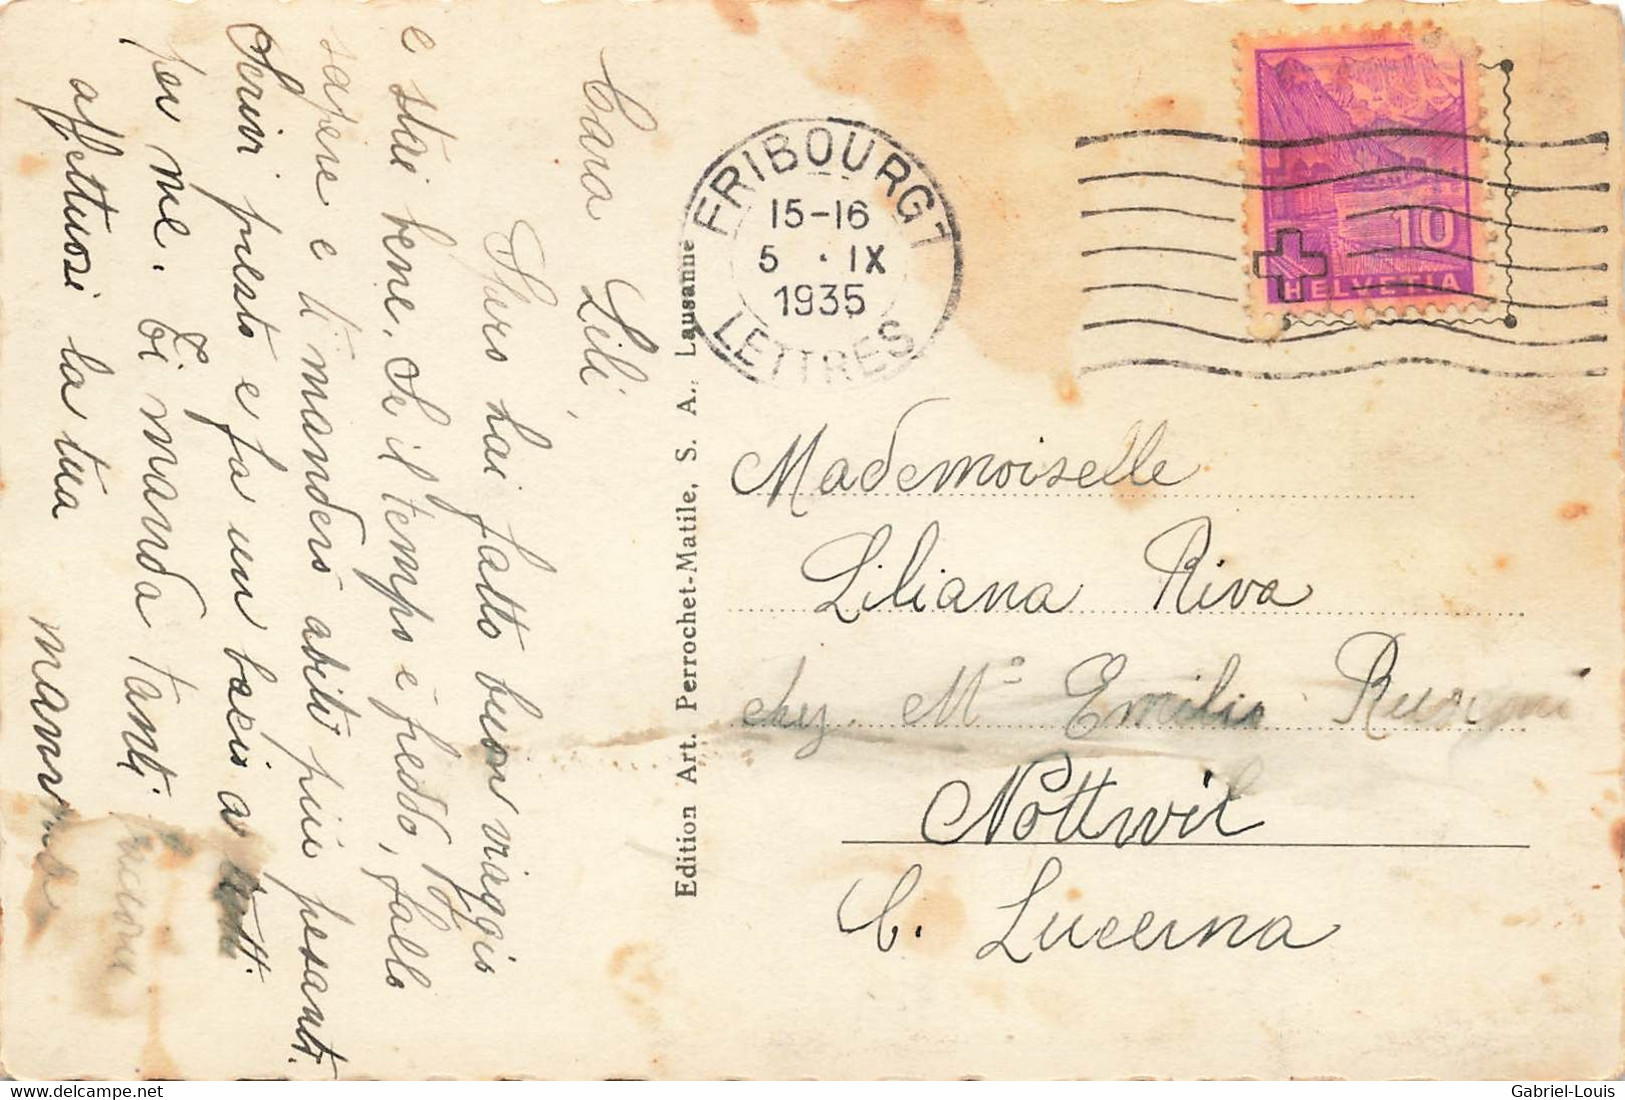 Cara Lili,
Spero hai fatto buon viaggio
e stai bene. Se il tempo è freddo, fallo
sapere e ti manderò abiti più pesanti.
Scrivi presto e fa un bacio a tutti
per me. Ti manda tanti bacioni
affettuosi la tua
mamma
Edition Art. Perrochet-Matile, S. A., Lausanne
FRIBOURG 1
15-16
5 · IX
1935
LETTRES
10
HELVETIA
Mademoiselle
Liliana Riva
chez Mº Emilio
Nottwil
C. Lucerna
delcampe.net
Gabriel-Louis